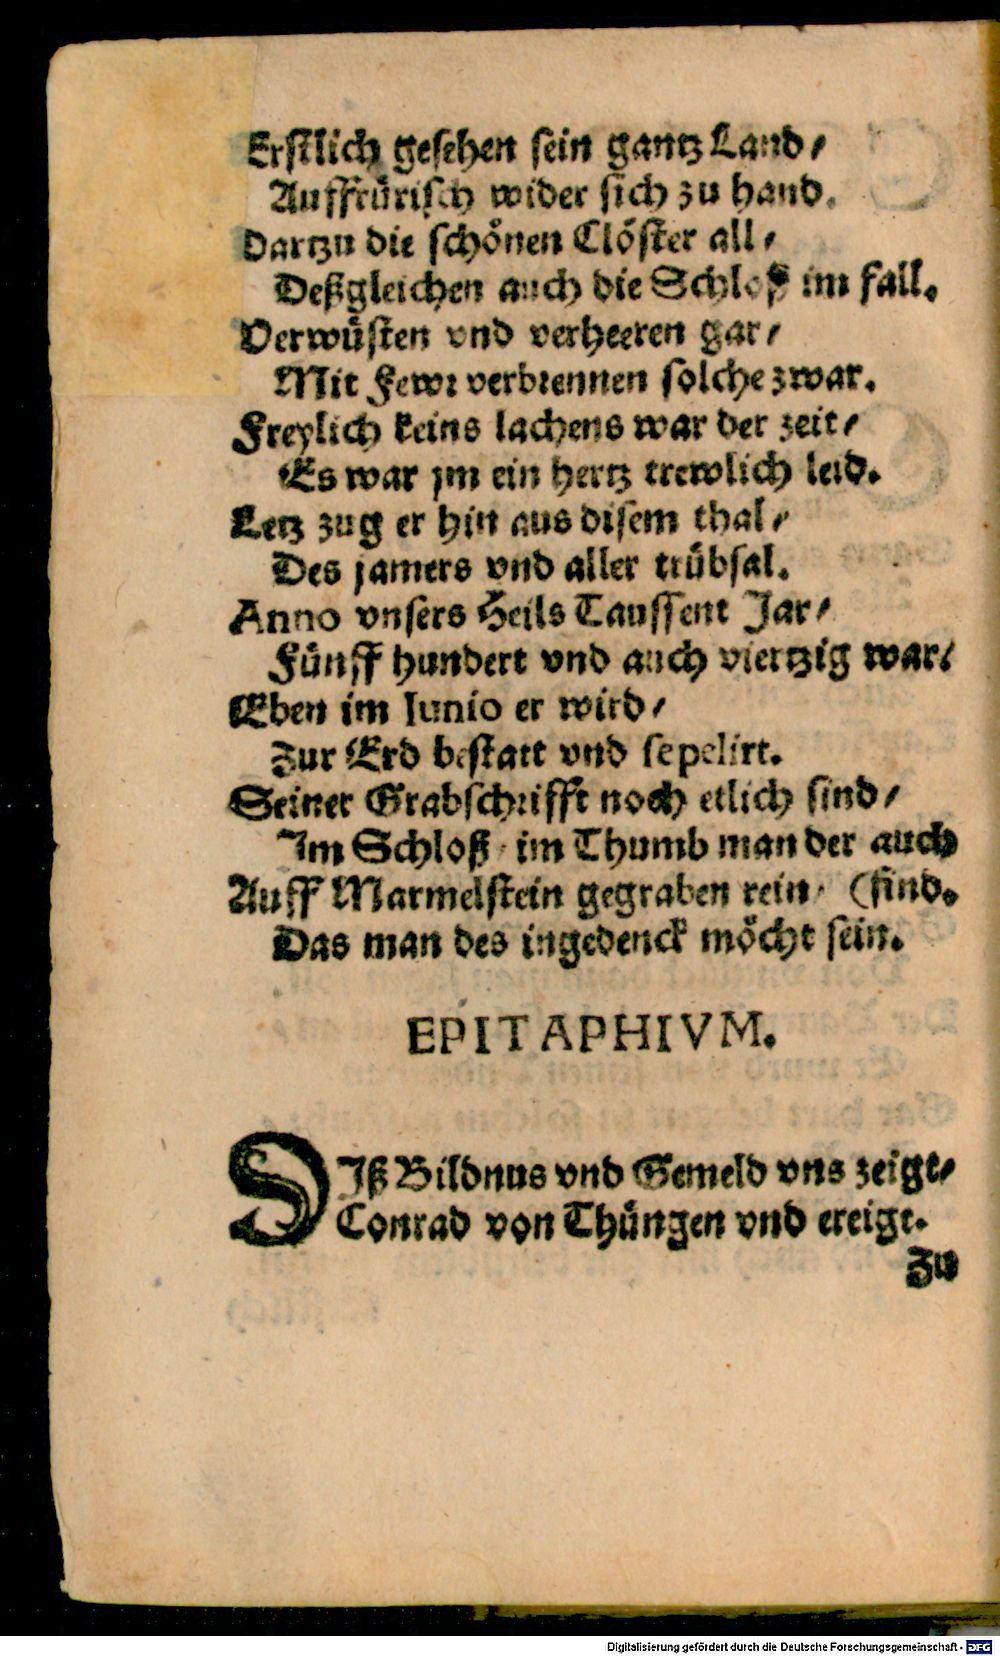 Erstlich gesehen sein gantz Land/
Auffrürisch wider sich zu hand.
Dartzu die schönen Clöster all/
Deßgleichen auch die Schloß im fall.
Verwüsten vnd verheeren gar/
Mit Fewr verbrennen solche zwar.
Freylich keins lachens war der zeit/
Es war jm ein hertz trewlich leid.
Letz zug er hin aus disem thal/
Des jamers vnd aller trübsal.
Anno vnsers Heils Taussent Jar/
Fünff hundert vnd auch viertzig war/
Eben im Iunio er wird/
Zur Erd bestatt vnd sepelirt.
Seiner Grabschrifft noch etlich sind/
Im Schloß/ im Thumb man der auch
Auff Marmelstein gegraben rein/ (find.
Das man des ingedenck möcht sein.
EPITAPHIVM.
DIß Bildnus vnd Gemeld vns zeigt/
Conrad von Thüngen vnd ereigt.
Zu
Digitalisierung gefördert durch die Deutsche Forschungsgemeinschaft - DFG